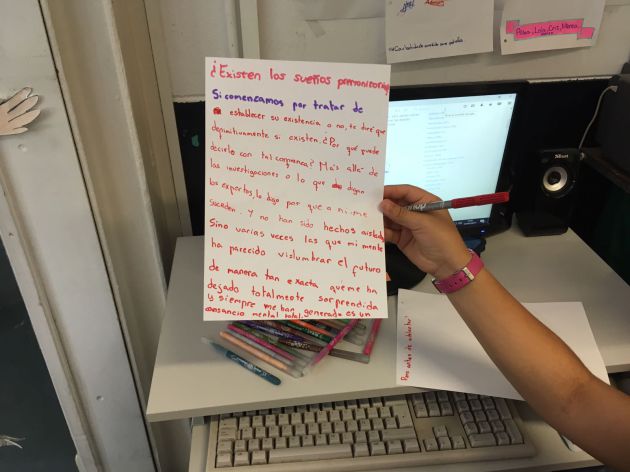 ¿Existen los sueños premonitorios
Si comenzamos por tratar de
establecer su existencia o no, te diré que
definitivamente si existen ¿Por qué puede
decirlo con tal
Más allá de
las investigaciones o lo que digan
los expertos, lo digo por que a mi me
suceden. y no han sido hechos aislados
Sino varias veces las que mi mente
ha parecido vislumbrar el futuro
de manera tan exacta que me ha
dejado totalmente sorprendida
y siempre me han generado es un
cansancio mental total.
Alba, Lola, Cris, Marea
Trust